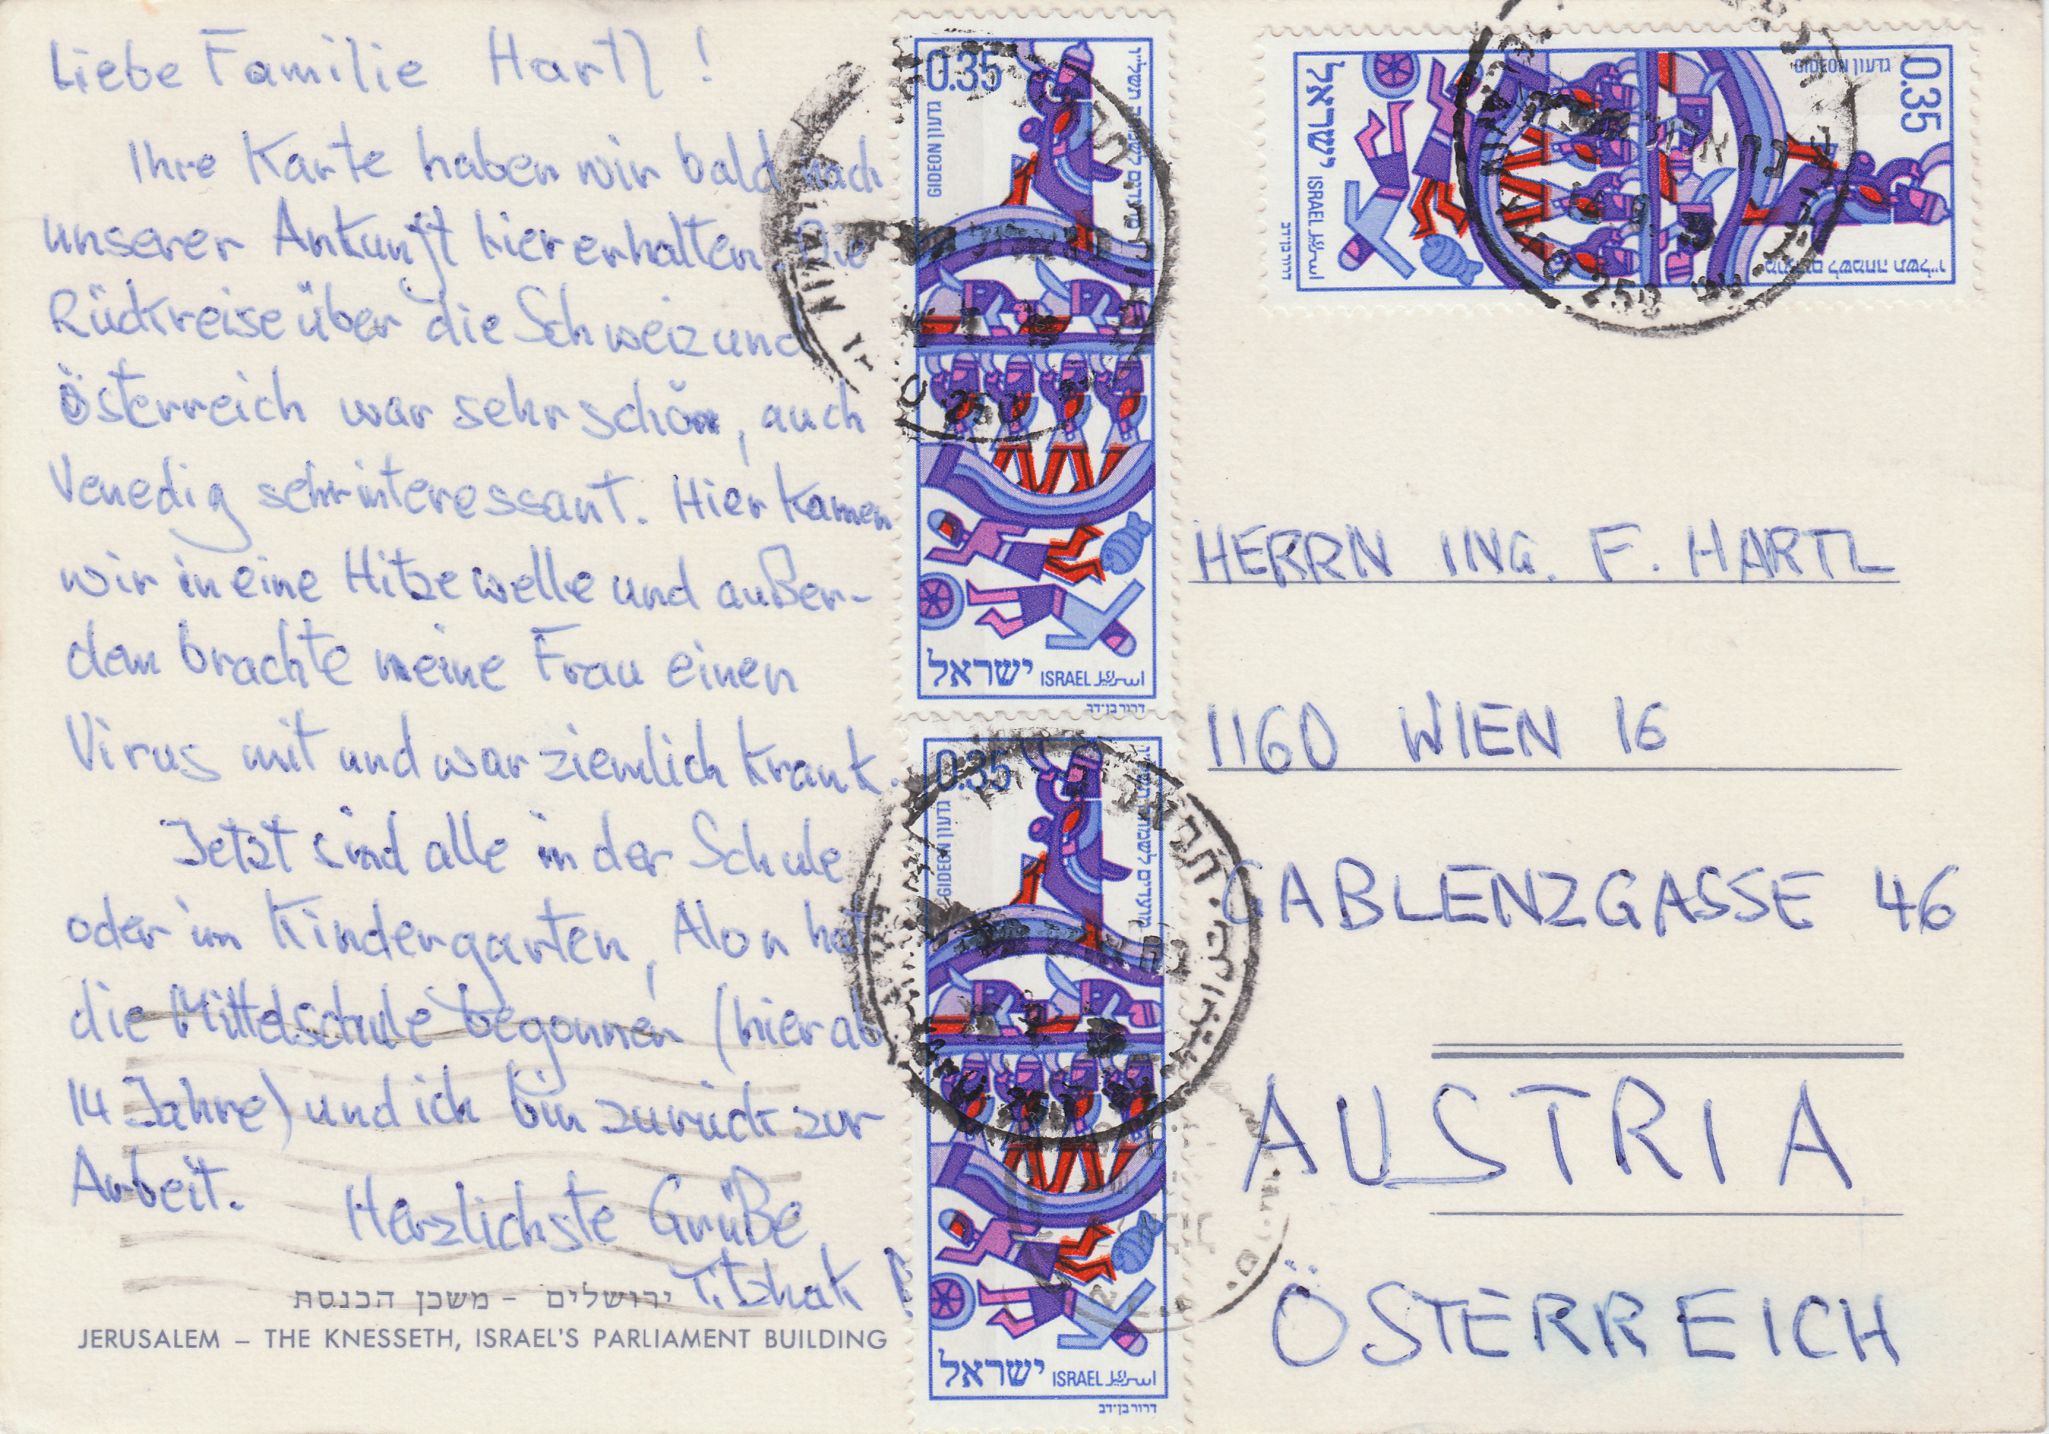 Liebe Familie Hartl !
Ihre Karte haben wir bald nach
unserer Ankunft hier erhalten. Die
Rückreise über die Schweiz und
Österreich war sehr schön, auch
Venedig sehr interessant. Hier kamen
wir in eine Hitzewelle und außer-
dem brachte meine Frau einen
Virus mit und war ziemlich krank.
Jetzt sind alle in der Schule
oder im Kindergarten, Alon hat
die Mittelschule begonnen (hier ab
14 Jahre) und ich bin zurück zur
Arbeit.
Herzlichste Grüße
ירושלים – משכן הכנסת
JERUSALEM – THE KNESSETH, ISRAEL'S PARLIAMENT BUILDING
0.35
גדעון GIDEON
מועדים לשמחה תשל"ו
ישראל ISRAEL اسرائيل
דרור בן-דב
0.35
גדעון GIDEON
מועדים לשמחה תשל"ו
ישראל ISRAEL اسرائيل
דרור בן-דב
0.35
גדעון GIDEON
מועדים לשמחה תשל"ו
ישראל ISRAEL اسرائيل
דרור בן-דב
HERRN ING. F. HARTL
1160 WIEN 16
GABLENZGASSE 46
AUSTRIA
ÖSTERREICH